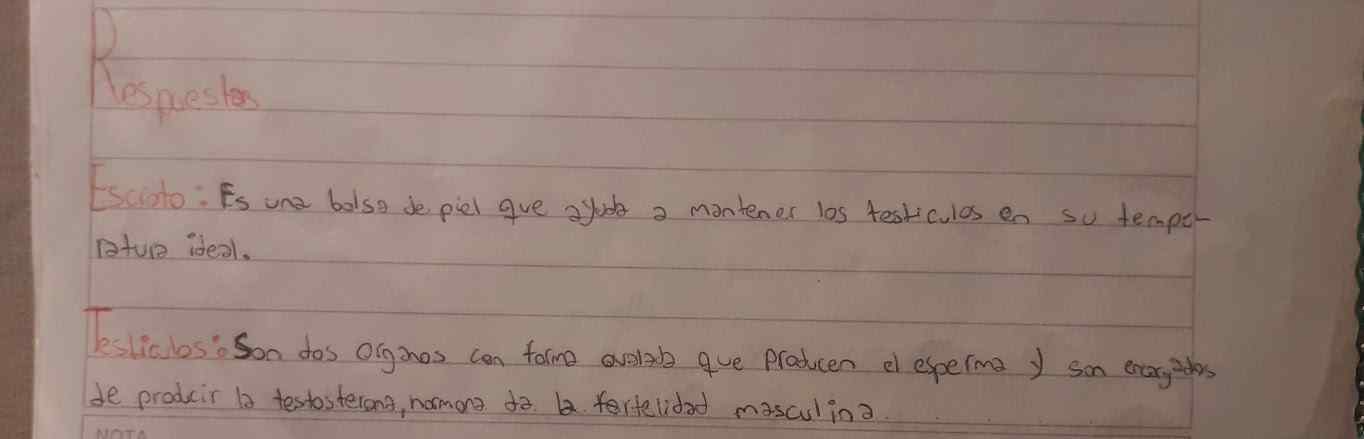 Respuestas
Escroto: Es una bolsa de piel que ayuda a mantener los testiculos en su tempe-
ratura ideal.
Testiclos: Son dos organos con forma ovalab que producen el esperma y son encargados
de producir la testosterona, hormona de la fertelidad masculina.
NOTA